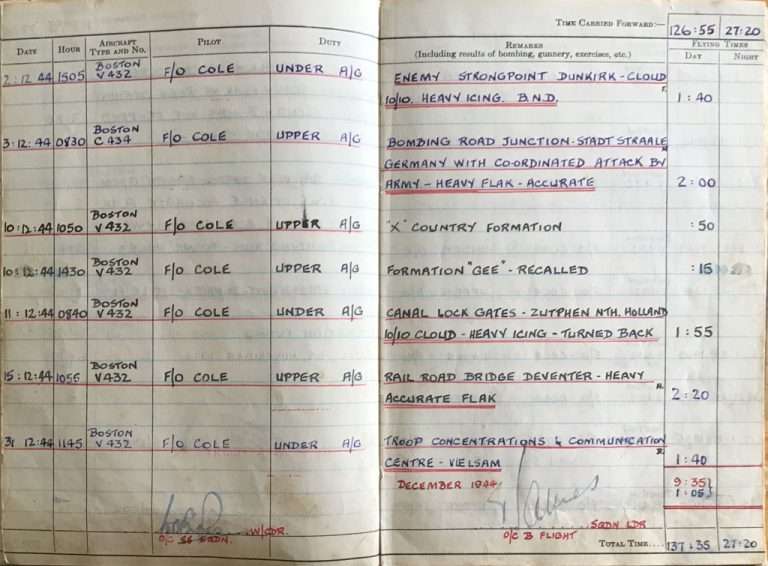 TIME CARRIED FORWARD:— 126:55 27:20
DATE HOUR AIRCRAFT TYPE AND NO. PILOT DUTY REMARKS (Including results of bombing, gunnery, exercises, etc.) FLYING TIMES DAY NIGHT
2:12:44 1505 BOSTON V432 F/O COLE UNDER A/G ENEMY STRONGPOINT DUNKIRK - CLOUD
10/10. HEAVY ICING. B.N.D. 1:40
3:12:44 0830 BOSTON C434 F/O COLE UPPER A/G BOMBING ROAD JUNCTION - STADT STRAALE
GERMANY WITH CO-ORDINATED ATTACK BY
ARMY - HEAVY FLAK - ACCURATE 2:00
10:12:44 1050 BOSTON V432 F/O COLE UPPER A/G "X" COUNTRY FORMATION :50
10:12:44 1430 BOSTON V432 F/O COLE UPPER A/G FORMATION "GEE" - RECALLED :15
11:12:44 0840 BOSTON V432 F/O COLE UNDER A/G CANAL LOCK GATES - ZUTPHEN NTH. HOLLAND
10/10 CLOUD - HEAVY ICING - TURNED BACK 1:55
15:12:44 1055 BOSTON V432 F/O COLE UPPER A/G RAIL ROAD BRIDGE DEVENTER - HEAVY
ACCURATE FLAK 2:20
31 12:44 1145 BOSTON V432 F/O COLE UNDER A/G TROOP CONCENTRATIONS & COMMUNICATION
CENTRE - VIELSAM 1:40
DECEMBER 1944 9:35
1:05
W/CDR.
O/C SQDN.
SQDN LDR
O/C B FLIGHT
TOTAL TIME.... 137:35 27:20